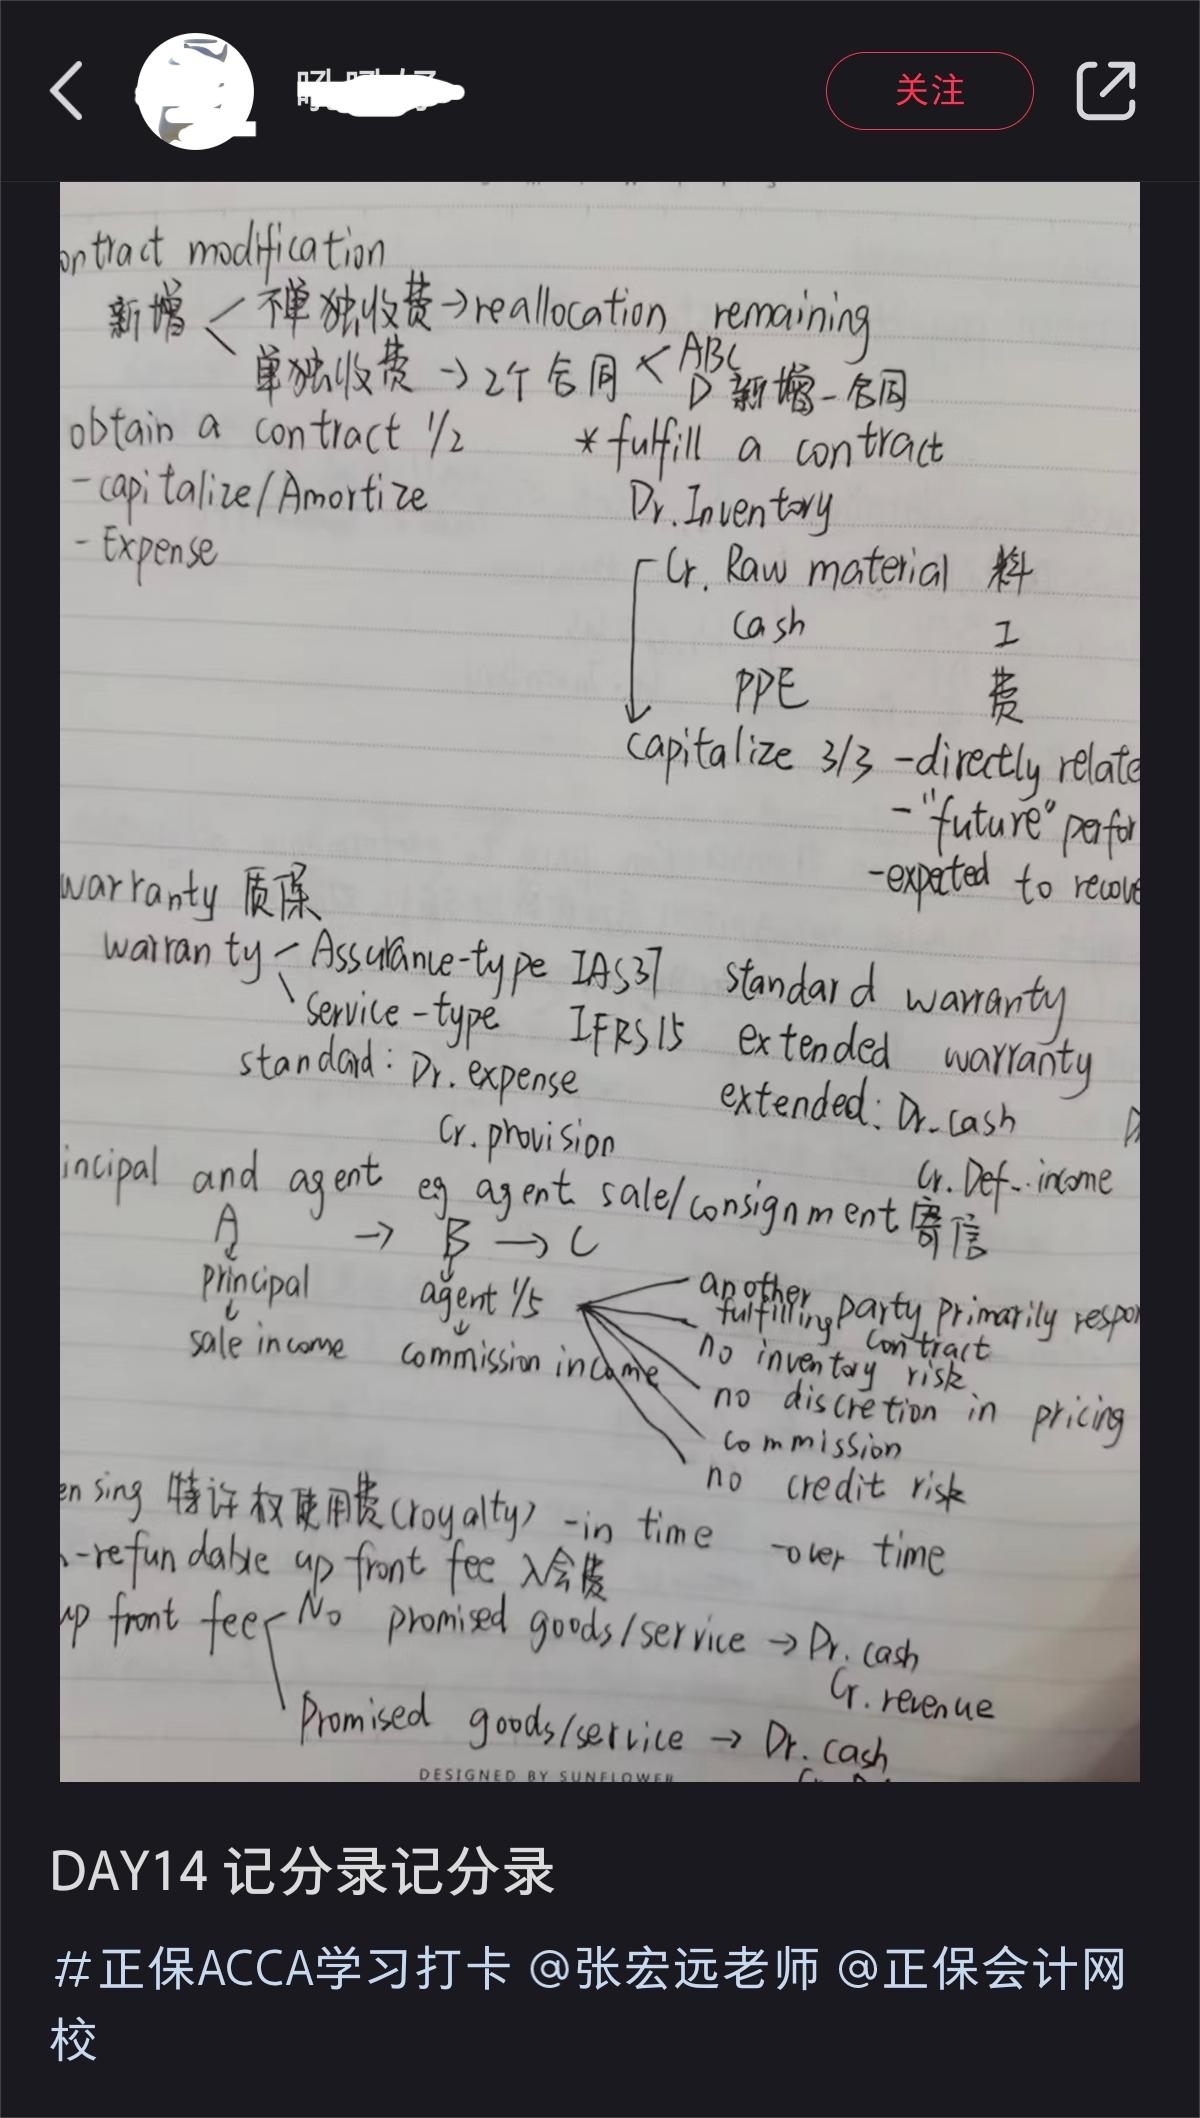 关注
ontract modification
新增 不单独收费→reallocation remaining
单独收费→2个合同 ABC
D 新增一合同
obtain a contract 1/2 *fulfill a contract
-capitalize/Amortize Dr.Inventory
-Expense
Cr. Raw material 料
cash 工
PPE 费
capitalize 3/3 -directly relate
-"future" perfor
-expected to recove
warranty 质保
warranty Assurance-type IAS37 standard warranty
service-type IFRS15 extended warranty
standard: Dr. expense extended: Dr. cash
Cr. provision Cr. Def.. income
incipal and agent eg agent sale/consignment 寄信
A → B → C
principal agent 1/5
sale income commission income
another party primarily respon
fulfilling contract
no inventory risk
no discretion in pricing
commission
no credit risk
ensing 特许权使用费(royalty) -in time -over time
-refundable up front fee 入会费
up front fee No promised goods/service → Dr. cash
Cr. revenue
Promised goods/service → Dr. cash
DESIGNED BY SUNFLOWER
DAY14 记分录记分录
#正保ACCA学习打卡 @张宏远老师 @正保会计网
校